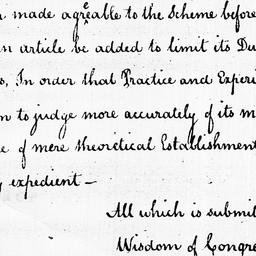 made agreable to the Scheme before
an article be added to limit its Du
s, In order that Practice and Experi
n to judge more accurately of its m
e of mere theoretical Establishment
y expedient —
All which is submit
Wisdom of Congre